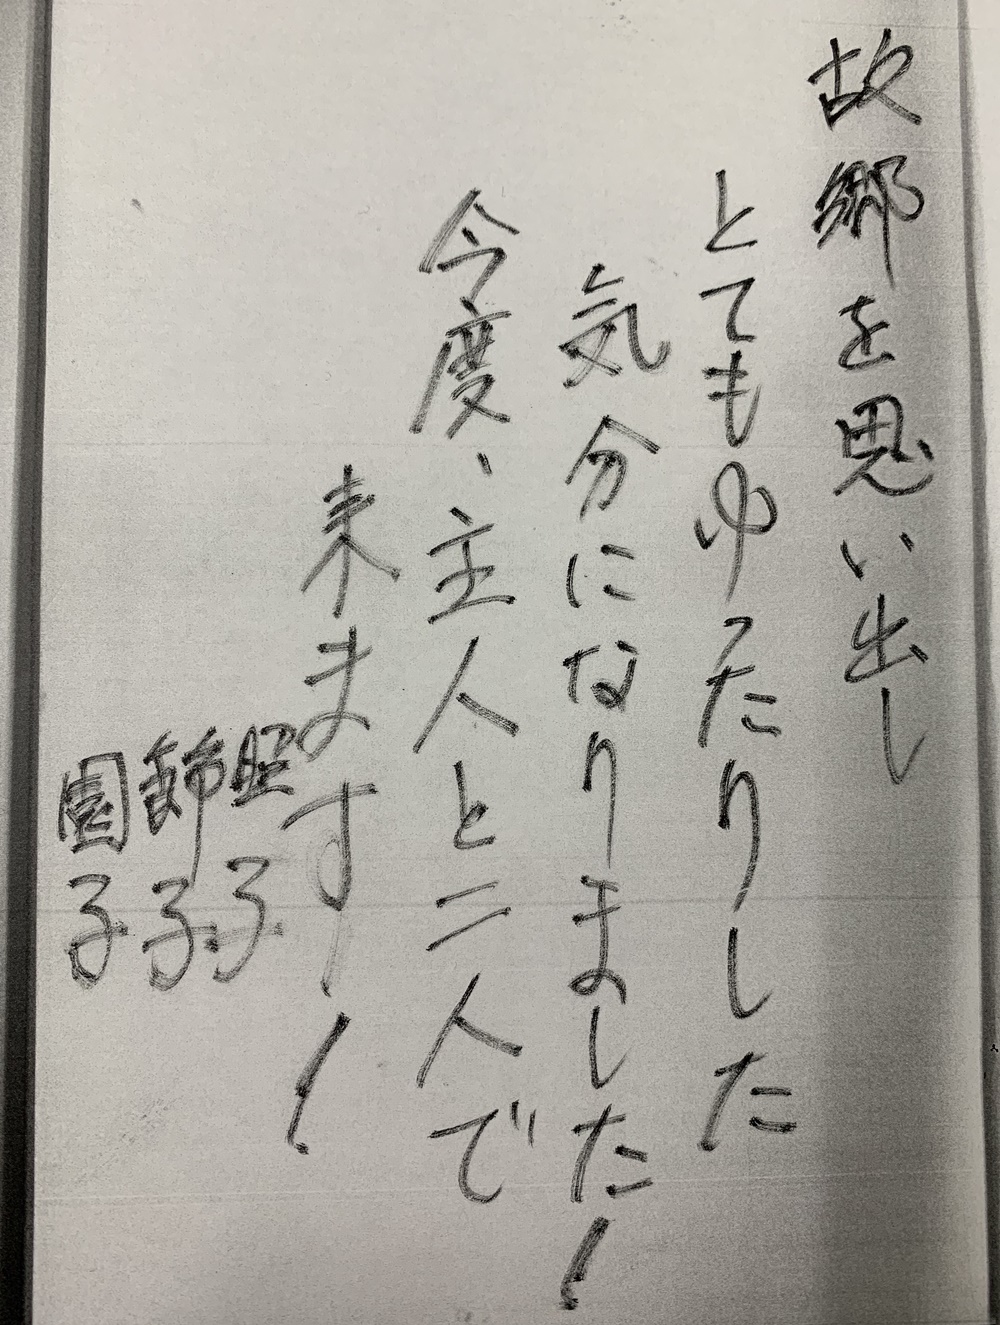 故郷を思い出し
とてもゆったりした
気分になりました!
今度、主人と二人で
来ます!
照子
飾子
園子